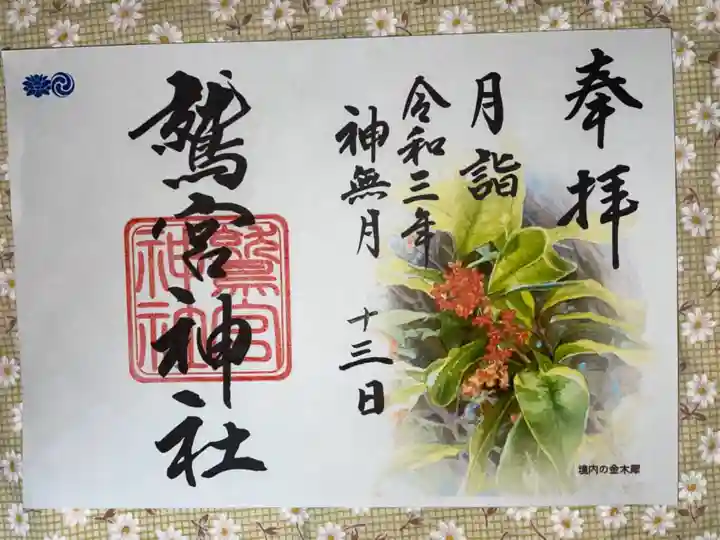 奉拝
月詣
令和三年
神無月 十三日
鷲宮神社
鷲宮神社
境内の金木犀